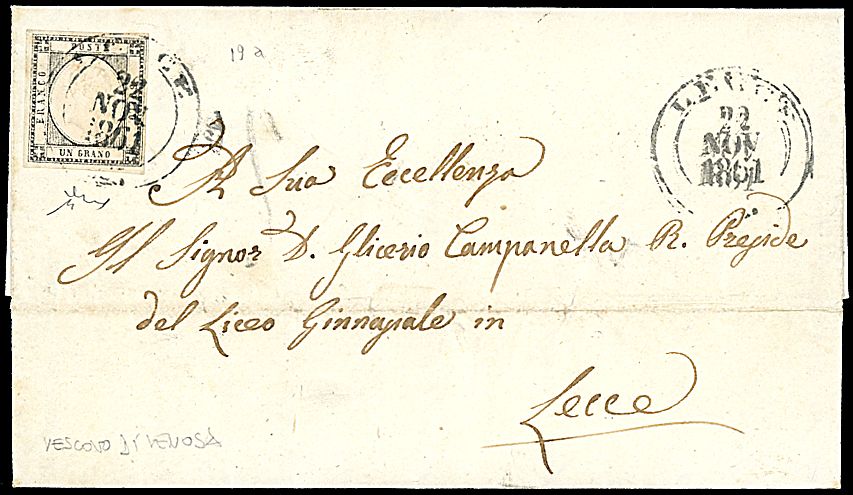 POSTE
FRANCO
UN GRANO
22
NOV
1861
19 a
LECCE
22
NOV
1861
A Sua Eccellenza
Il Signor D. Glicerio Campanella R. Preside
del Liceo Ginnasiale in
Lecce
VESCOVO DI VENOSA